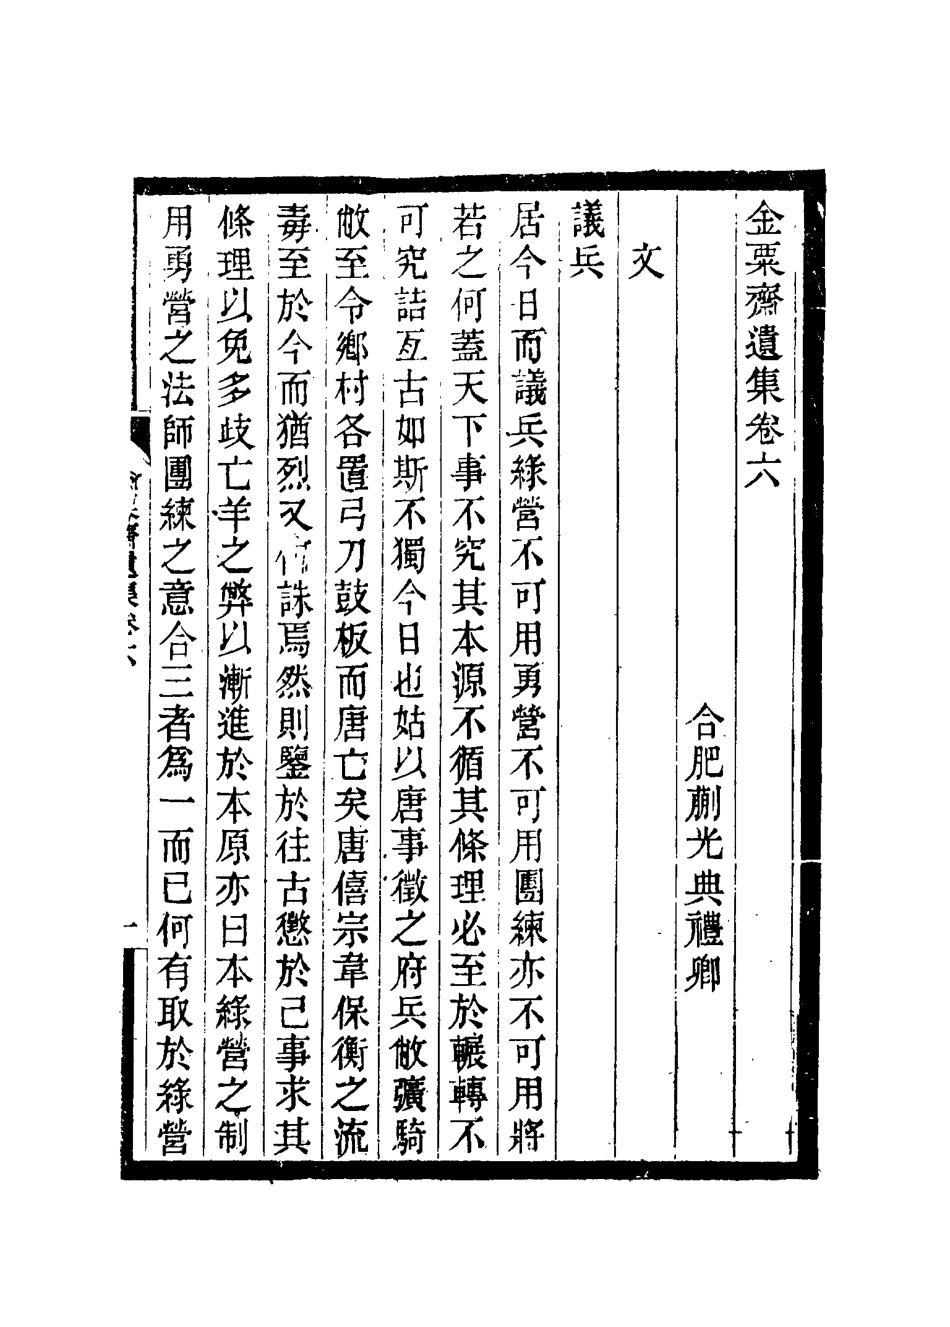 金粟齋遺集卷六
合肥蒯光典禮卿
文
議兵
居今日而議兵綠營不可用勇營不可用團練亦不可用將
若之何蓋天下事不究其本源不循其條理必至於輾轉不
可究詰亙古如斯不獨今日也姑以唐事徵之府兵敝彍騎
敝至令鄉村各置弓刀鼓板而唐亡矣唐僖宗韋保衡之流
毒至於今而猶烈又何誅焉然則鑒於往古懲於己事求其
條理以免多歧亡羊之弊以漸進於本原亦曰本綠營之制
用勇營之法師團練之意合三者爲一而已何有取於綠營
齋遺集卷六
一